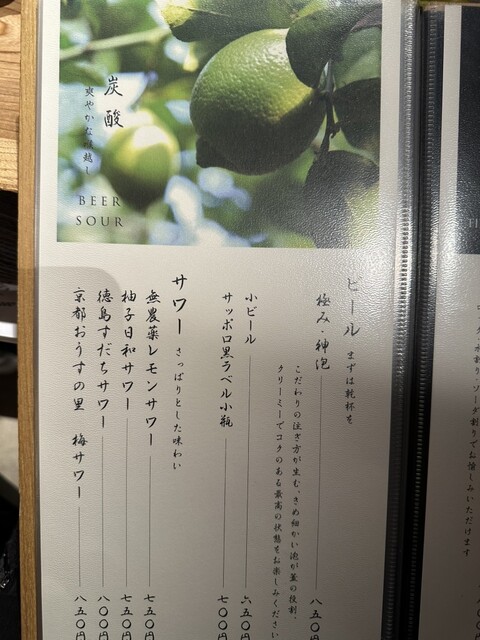 炭酸
爽やかな喉越し
BEER
SOUR
ビール まずは乾杯を
極み・神泡 八五〇
こだわりの注ぎ方が生む、きめ細かい泡が蓋の役割。
クリーミーでコクのある最高の状態をお楽しみください
小ビール 六五〇円
サッポロ黒ラベル小瓶 七〇〇円
サワー さっぱりとした味わい
無農薬レモンサワー 七五〇円
柚子日和サワー 七五〇円
徳島すだちサワー 八〇〇円
京都おうすの里 梅サワー 八五〇円
ソーダ割りでお愉しみいただけます